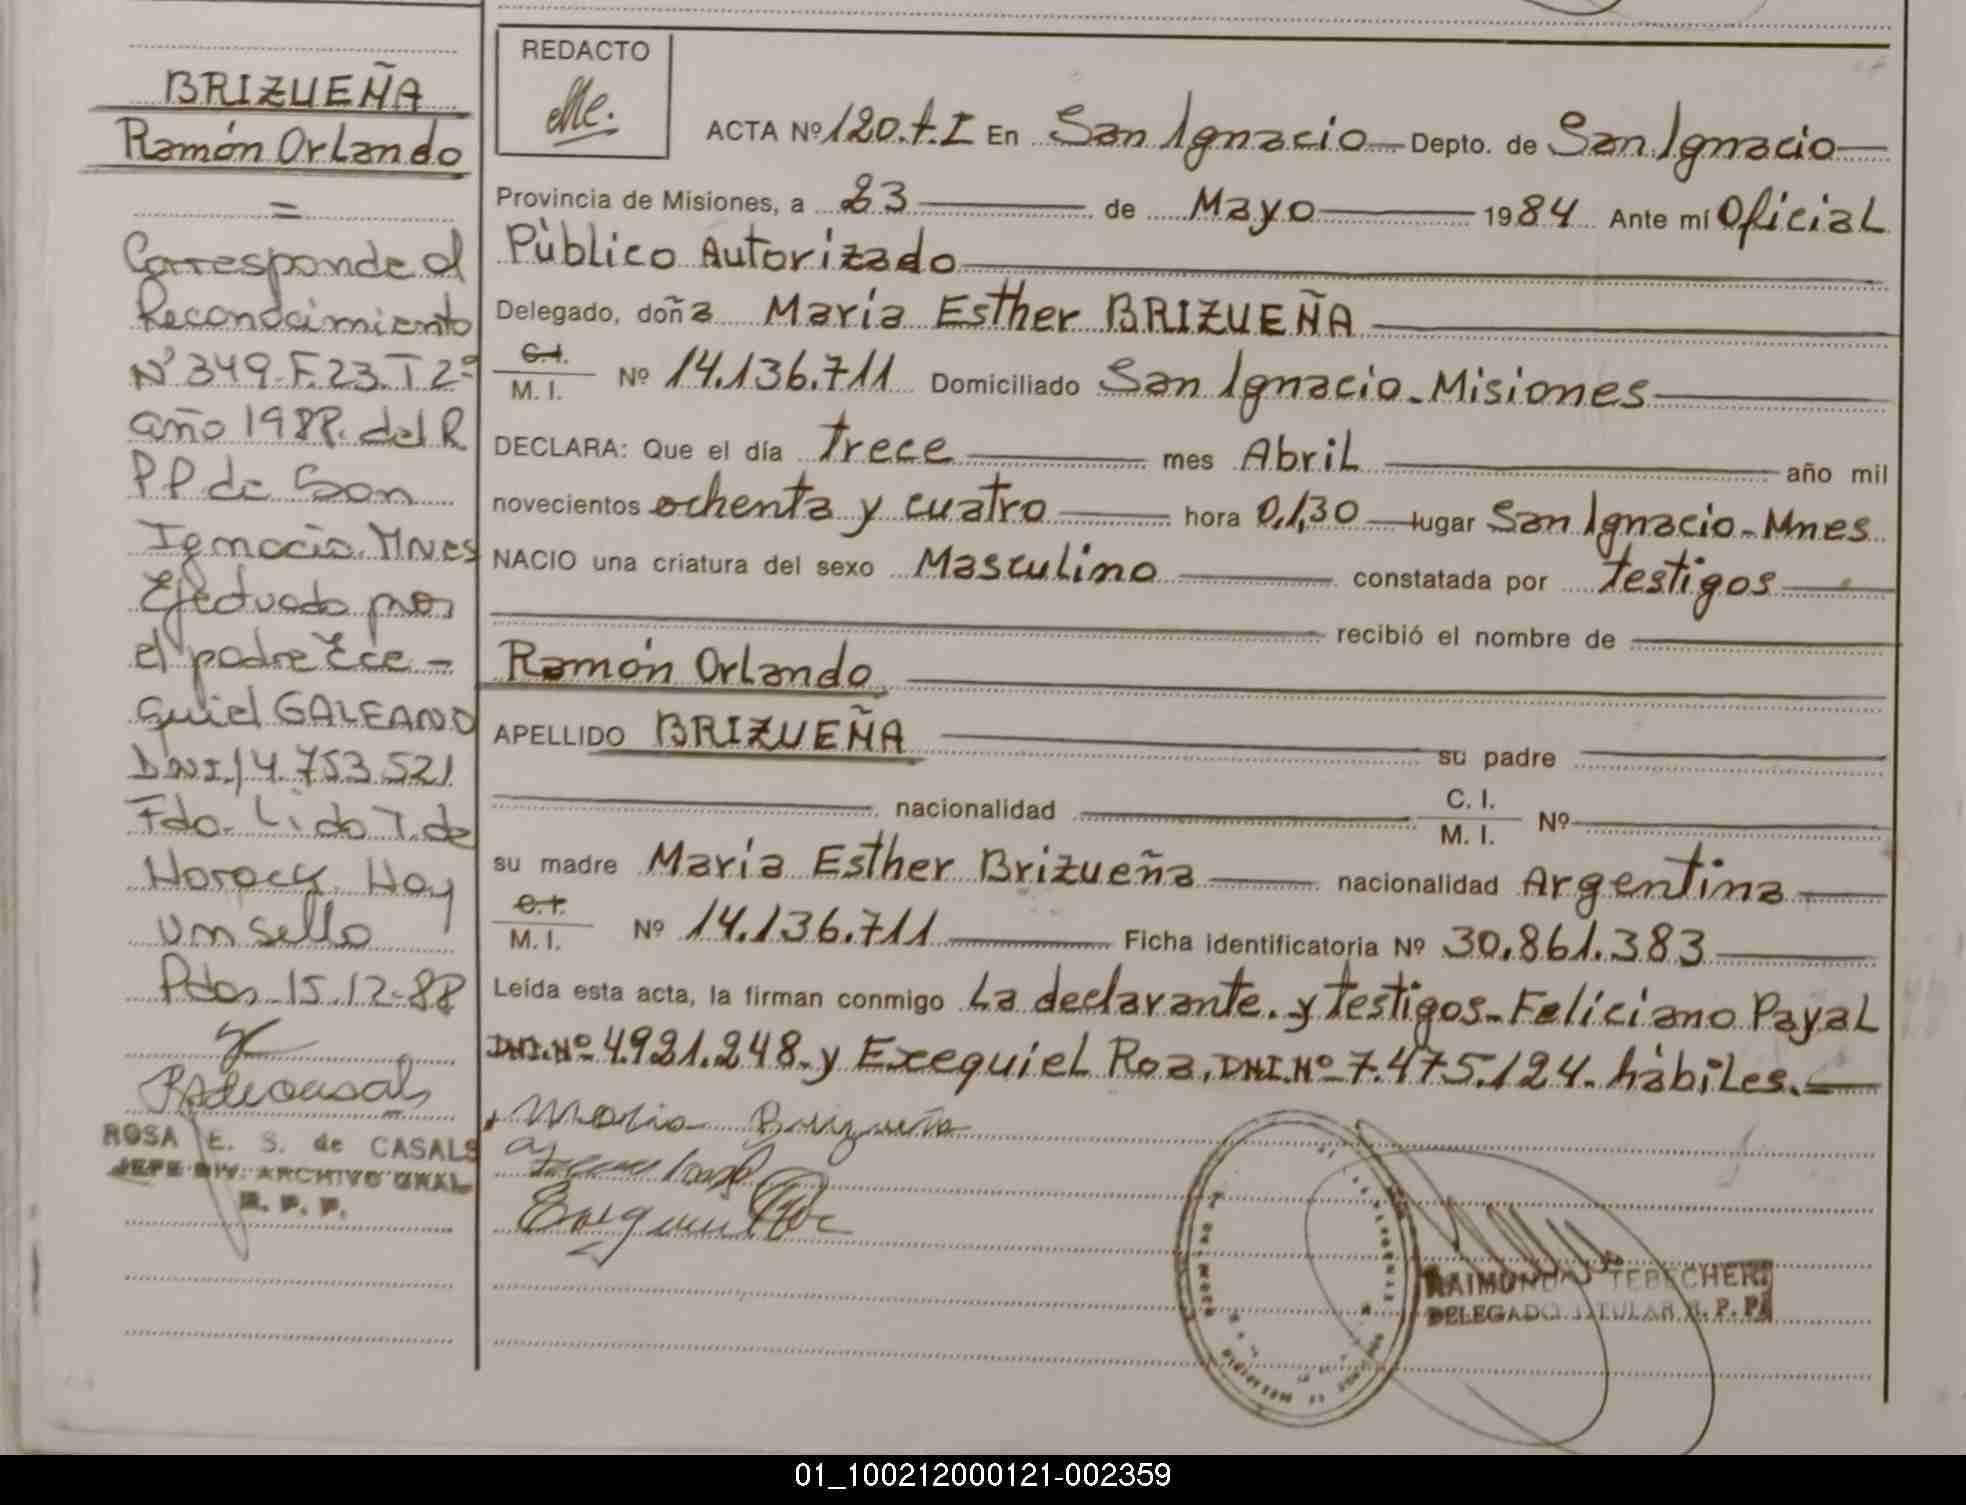 BRIZUEÑA
Ramón Orlando
=
Corresponde al
Reconocimiento
Nº 349-F.23.T 2º
año 1988. del R
P P de San
Ignacio. Mnes
Efectuado por
el padre Ece-
quiel GALEANO
DNI. 14.753.521.
Fdo. Lido T. de
Horock. Hay
un sello
Pdas. 15.12-88
ROSA E. S. de CASALS
JEFE DIV. ARCHIVO GRAL
R. P. P.
REDACTO
ACTA Nº 120.t.I En San Ignacio Depto. de San Ignacio
Provincia de Misiones, a 23 de Mayo 1984 Ante mí Oficial
Público Autorizado
Delegado, doña María Esther BRIZUEÑA
C.I.
M. I. Nº 14.136.711 Domiciliado San Ignacio-Misiones
DECLARA: Que el día trece mes Abril año mil
novecientos ochenta y cuatro hora 0,1,30 lugar San Ignacio-Mnes
NACIO una criatura del sexo Masculino constatada por testigos
recibió el nombre de
Ramón Orlando
APELLIDO BRIZUEÑA su padre
nacionalidad C. I.
M. I. Nº
su madre María Esther Brizueña nacionalidad Argentina
C.I.
M. I. Nº 14.136.711 Ficha identificatoria Nº 30.861.383
Leída esta acta, la firman conmigo La declarante. y testigos-Feliciano Payal
DNI.Nº 4.921.248-y Exequiel Roa, DNI.Nº 7.475.124. hábiles.
Maria Brizueña
Exequiel Roa
RAIMUNDO TEBECHERI
DELEGADO TITULAR R. P. P.
01_100212000121-002359